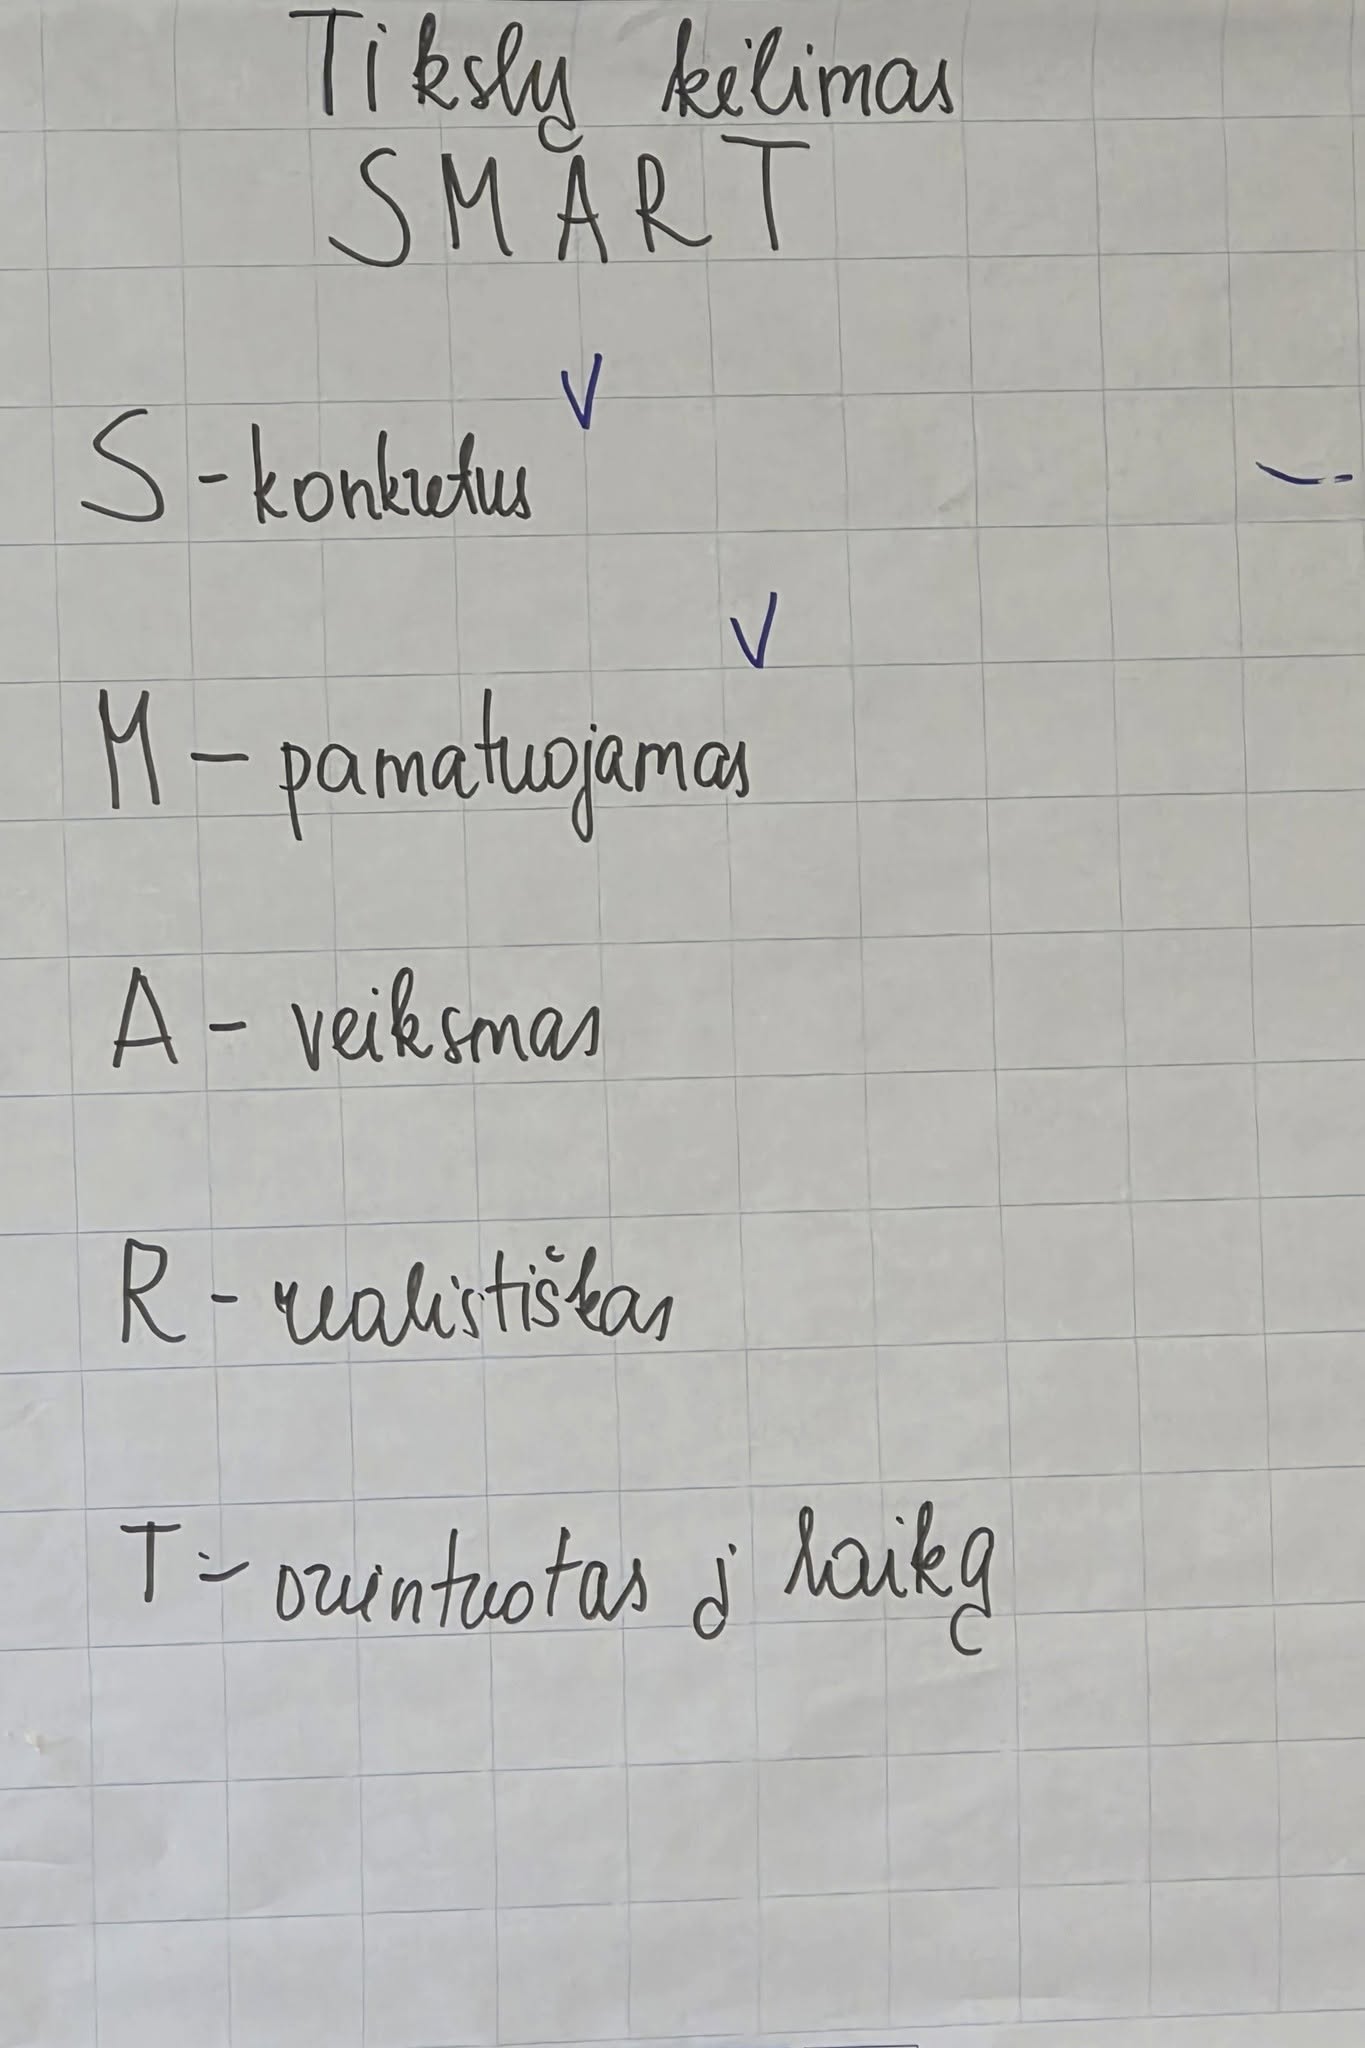 Tikslų kėlimas
SMART
S - konkretus
M - pamatuojamas
A - veiksmas
R - realistiškas
T - orientuotas į laiką